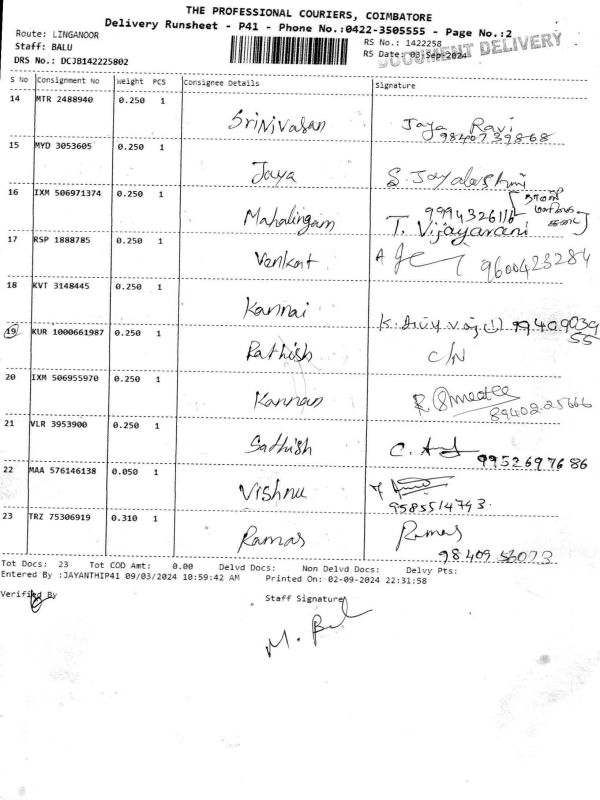 THE PROFESSIONAL COURIERS, COIMBATORE
Delivery Runsheet - P41 - Phone No.:0422-3505555 - Page No.:2
Route: LINGANOOR
RS No.: 1422258
DOCUMENT DELIVERY
Staff: BALU
RS Date: 03-Sep-2024
DRS No.: DCJB142225802
S No Consignment No Weight PCS Consignee Details Signature
14 MTR 2488940 0.250 1 Srinivasan Jaya Ravi
9840739868
15 MYD 3053605 0.250 1
Jaya
16 IXM 506971374 0.250 1 9994326116
Mahalingam T. Vijayarani
17 RSP 1888785 0.250 1
Venkat 9600423284
18 KVT 3148445 0.250 1
Kannai
19 KUR 1000661987 0.250 1
Rathish C/N
20 IXM 506955970 0.250 1
Kannan
21 VLR 3953900 0.250 1
Sathish 9952697686
22 MAA 576146138 0.050 1
Vishnu 9585514793
23 TRZ 75306919 0.310 1
Ramas Ramas
Tot Docs: 23 Tot COD Amt: 0.00 Delvd Docs: Non Delvd Docs: Delvy Pts:
Entered By :JAYANTHIP41 09/03/2024 10:59:42 AM Printed On: 02-09-2024 22:31:58
Verified By Staff Signature